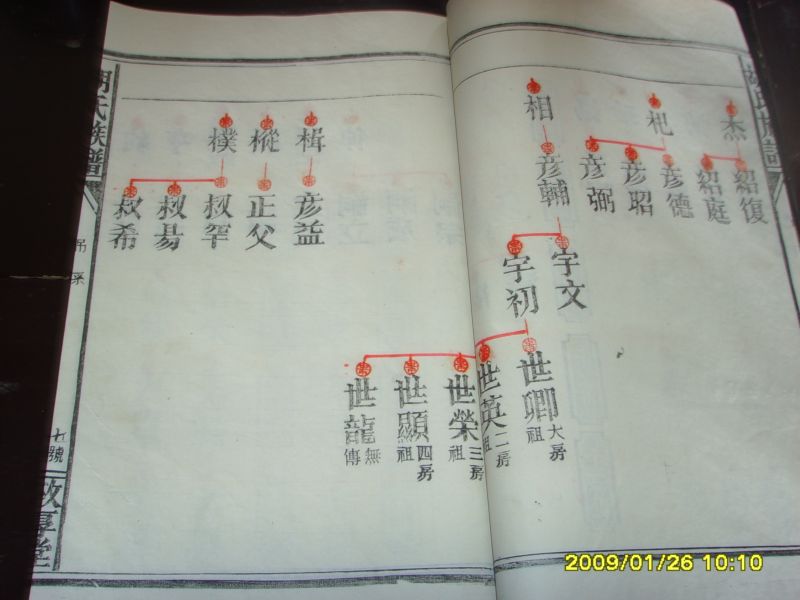 胡氏族譜
杰
紹復
紹庭
杞
彥德
彥昭
彥弼
相
彥輔
宇文
宇初
世卿
大房祖
世英
二房祖
世榮
三房祖
世顯
四房祖
世龍
無傳
楫
彥益
樅
正父
樸
叔罕
叔易
叔希
胡氏族譜
七號
2009/01/26 10:10